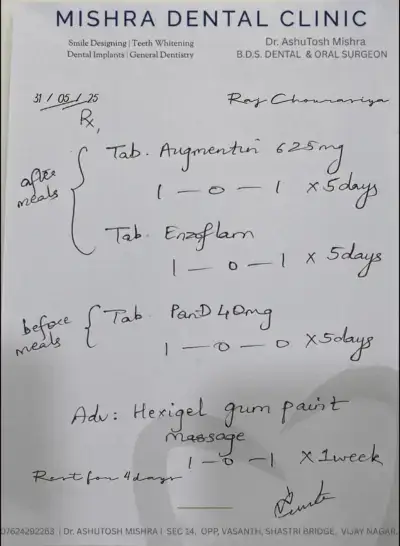 MISHRA DENTAL CLINIC
Smile Designing | Teeth Whitening
Dental Implants | General Dentistry
Dr. AshuTosh Mishra
B.D.S. DENTAL & ORAL SURGEON
31/05/25
Raj Chourariya
Rx,
after meals
Tab. Augmentin 625mg
1 — 0 — 1 x 5days
Tab. Enzoflam
1 — 0 — 1 x 5days
before meals
Tab. PanD 40mg
1 — 0 — 0 x 5days
Adv: Hexigel gum paint
massage
1 — 0 — 1 x 1week
Rest for 4 days
07624292263 | Dr. ASHUTOSH MISHRA | SEC 14, OPP, VASANTH, SHASTRI BRIDGE, VIJAY NAGAR,